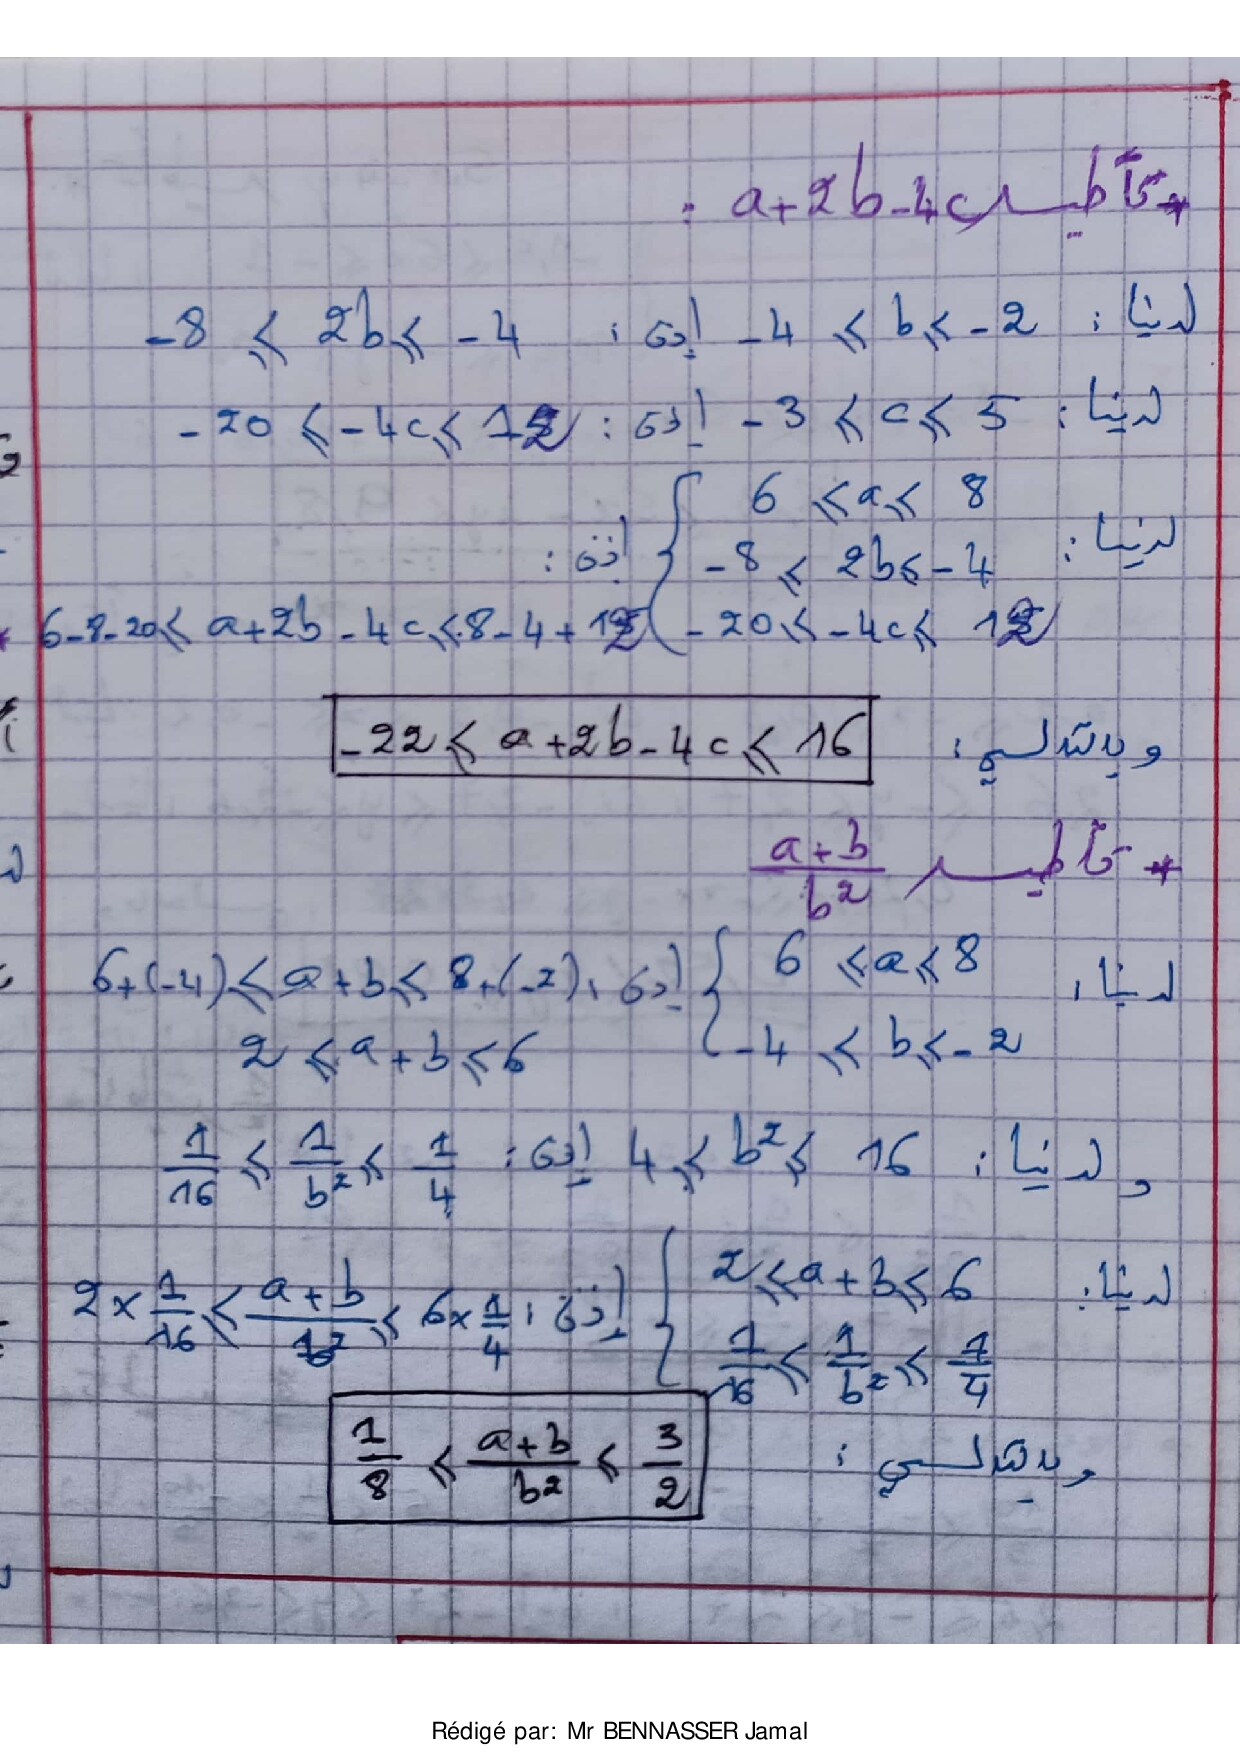 * تأطير a+2b-4c :
لدينا : -4 ⩽ b ⩽ -2 إذن : -8 ⩽ 2b ⩽ -4
لدينا : -3 ⩽ c ⩽ 5 إذن : -20 ⩽ -4c ⩽ 12
لدينا : { 6 ⩽ a ⩽ 8
-8 ⩽ 2b ⩽ -4
-20 ⩽ -4c ⩽ 12
إذن : 6-8-20 ⩽ a+2b-4c ⩽ 8-4+12
وبالتالي : -22 ⩽ a+2b-4c ⩽ 16
* تأطير (a+b)/b²
لدينا : { 6 ⩽ a ⩽ 8
-4 ⩽ b ⩽ -2
إذن : 6+(-4) ⩽ a+b ⩽ 8+(-2)
2 ⩽ a+b ⩽ 6
و لدينا : 4 ⩽ b² ⩽ 16 إذن : 1/16 ⩽ 1/b² ⩽ 1/4
لدينا : { 2 ⩽ a+b ⩽ 6
1/16 ⩽ 1/b² ⩽ 1/4
إذن : 2×1/16 ⩽ (a+b)/b² ⩽ 6×1/4
وبالتالي : 1/8 ⩽ (a+b)/b² ⩽ 3/2
Rédigé par: Mr BENNASSER Jamal